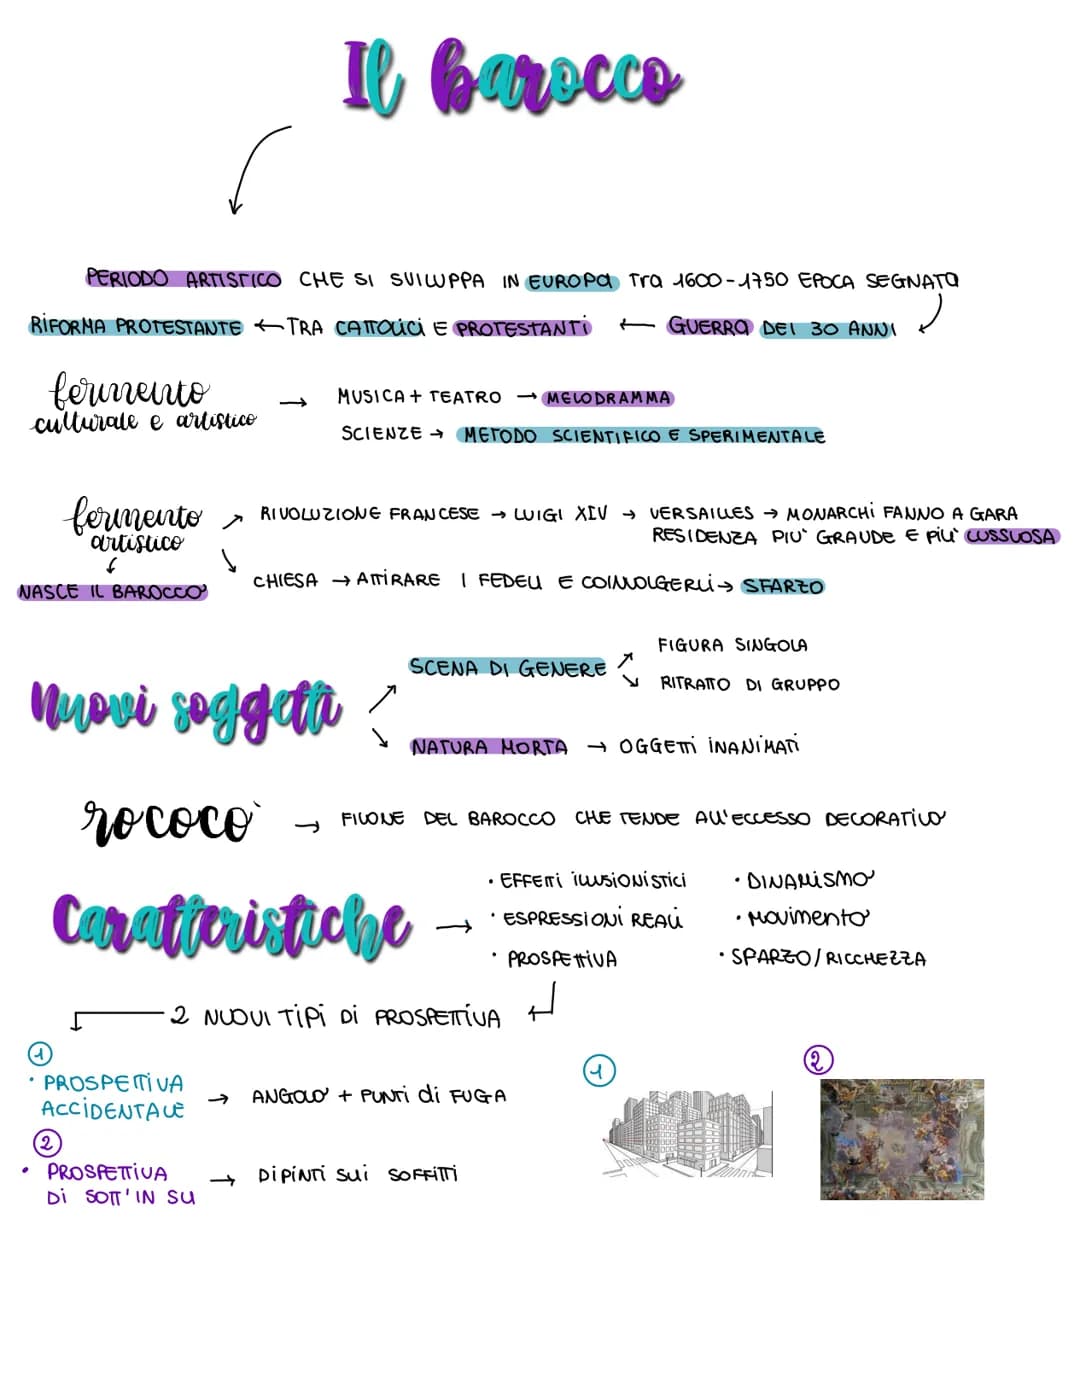 Il barocco
PERIODO ARTISTICO CHE SI SVILUPPA IN EUROPA Tra 1600-1750 EPOCA SEGNATO
RIFORMA PROTESTANTE ← TRA CATTOLICI E PROTESTANTI ← GUERRA DEI 30 ANNI
fermento
culturale e artistico
→ MUSICA + TEATRO → MELODRAMMA
SCIENZE → METODO SCIENTIFICO E SPERIMENTALE
fermento
artistico
NASCE IL BAROCCO
RIVOLUZIONE FRANCESE → LUIGI XIV → VERSAILLES → MONARCHI FANNO A GARA
RESIDENZA PIU' GRAUDE E PIU' LUSSUOSA
CHIESA → ATTIRARE I FEDELI E COINVOLGERLI → SFARZO
Nuovi soggetti
SCENA DI GENERE
FIGURA SINGOLA
RITRATTO DI GRUPPO
NATURA MORTA → OGGETTI INANIMATI
rococò → FILONE DEL BAROCCO CHE TENDE ALL'ECCESSO DECORATIVO
Caratteristiche →
• EFFETTI ILLUSIONISTICI
• ESPRESSIONI REALI
• PROSPETTIVA
• DINAMISMO
• MOVIMENTO
• SPARZO/RICCHEZZA
2 NUOVI TIPI DI PROSPETTIVA
1
• PROSPETTIVA
ACCIDENTALE
→ ANGOLO + PUNTI di FUGA
2
• PROSPETTIVA
DI SOTT'IN SU
→ DIPINTI SUI SOFFITTI
1
2